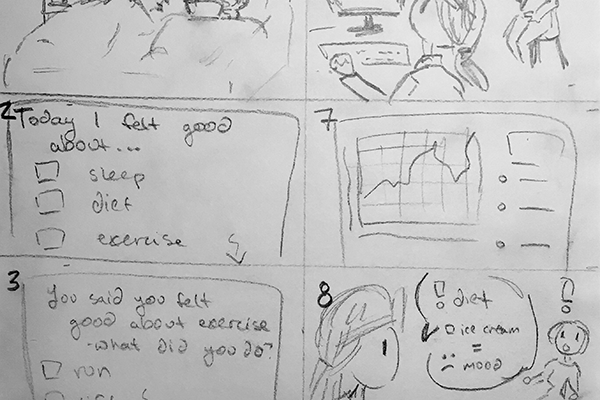 2
Today I felt good
about...
sleep
diet
exercise
3
You said you felt
good about exercise
what did you do?
run
7
8
! diet
ice cream
=
mood
!